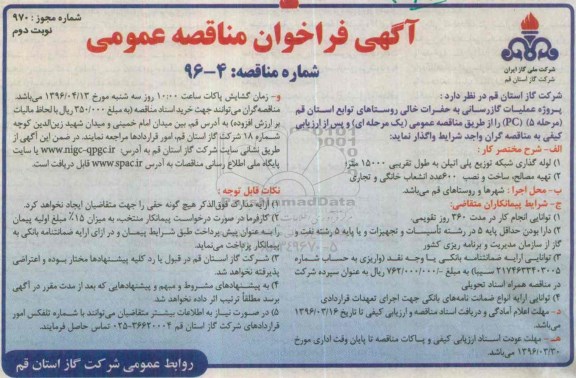 شماره مجوز : ۹۷۰
نوبت دوم
آگهی فراخوان مناقصه عمومی
شماره مناقصه: ۴-۹۶
شرکت ملی گاز ایران
شرکت گاز استان قم
شرکت گاز استان قم در نظر دارد :
پـروژه عملیـات گازرسـانی به حفـرات خالی روستـاهای توابع اسـتان قـم
(مرحله ۵) (PC) را از طریق مناقصه عمومی (یک مرحله ای) و پس از ارزیابی
کیفی به مناقصه گران واجد شرایط واگذار نماید:
الف- شرح مختصر کار :
۱) لوله گذاری شبکه توزیع پلی اتیلن به طول تقریبی ۱۵۰۰۰ متر؛
۲) تهیه مصالح، ساخت و نصب ۶۰۰عدد انشعاب خانگی و تجاری
ب- محل اجرا : شهرها و روستاهای قم می‌باشد.
ج- شرایط پیمانکاران متقاضی:
۱) توانایی انجام کار در مدت ۳۶۰ روز تقویمی.
۲) دارا بودن حداقل پایه ۵ در رشته تأسیسات و تجهیزات و یا پایه ۵ رشته نفت و
گاز از سازمان مدیریت و برنامه ریزی کشور
۳) توانایی ارایـه ضمانتنامه بانکـی یـا وجه نقـد (واریزی به حساب شـماره
۲۱۷۴۶۳۳۴۰۳۰۰۵ سـیبا) به مبلغ -/۷۶۲/۰۰۰/۰۰۰ ریال به عنوان سپرده شرکت
در مناقصه همراه اسناد تحویلی
۴) توانایی ارایه انواع ضمانت نامه‌های بانکی جهت اجرای تعهدات قراردادی
د- مهلت اعلام آمادگی و دریافت اسناد مناقصه و ارزیابی کیفی تا تاریخ ۱۳۹۶/۰۳/۱۶
می‌باشد.
هـ- مهلت عودت اسـناد ارزیابی کیفی و پـاکات مناقصه تا پایان وقت اداری مورخ
۱۳۹۶/۰۳/۳۰ می‌باشد.
و- زمان گشایش پاکات ساعت ۱۰:۰۰ روز سه شنبه مورخ ۱۳۹۶/۰۴/۱۳ می‌باشد.
مناقصه‌گران می‌توانند جهت خرید اسناد مناقصه (به مبلغ ۳۵۰/۰۰۰ ریال با لحاظ مالیات
بر ارزش افزوده) به آدرس قم، بین میدان امام خمینی و میدان شهید زین‌الدین کوچه
شماره ۱۸ شرکت گاز استان قم، امور قراردادها مراجعه نمایند. در ضمن این آگهی از
طریق نشانی سایت شرکت گاز استان قم به آدرس: www.nigc-qpgc.ir یا سایت
پایگاه ملی اطلاع رسانی مناقصات به آدرس www.spac.ir قابل دریافت است.
نکات قابل توجه :
۱) ارایه مدارک فوق‌الذکر هیچ گونه حقی را جهت متقاضیان ایجاد نخواهد کرد.
۲) کارفرما در صورت درخواسـت پیمانکار منتخب، به میزان ۱۵٪ مبلغ اولیه پیمان
را به عنوان پیش پرداخت طبق شرایط پیمـان و در ازای ارایه ضمانتنامه بانکی به
پیمانکار پرداخت می‌نماید.
۳) شـرکت گاز اسـتان قم در قبول یا رد کلیه پیشنهادها مختار بوده و اعتراضی
پذیرفته نخواهد شد.
۴) به پیشـنهادهای مشروط و مبهم و پیشنهادهایی که بعد از مدت مقرر در آگهی
برسد مطلقاً ترتیب اثر داده نخواهد شد.
۵) در صورت نیـاز به اطلاعات بیشتر متقاضیان می‌توانند با شـماره تلفکس امور
قراردادهای شرکت گاز استان قم ۳۶۶۲۰۰۰۴-۰۲۵ تماس حاصل فرمایند.
روابط عمومی شرکت گاز استان قم